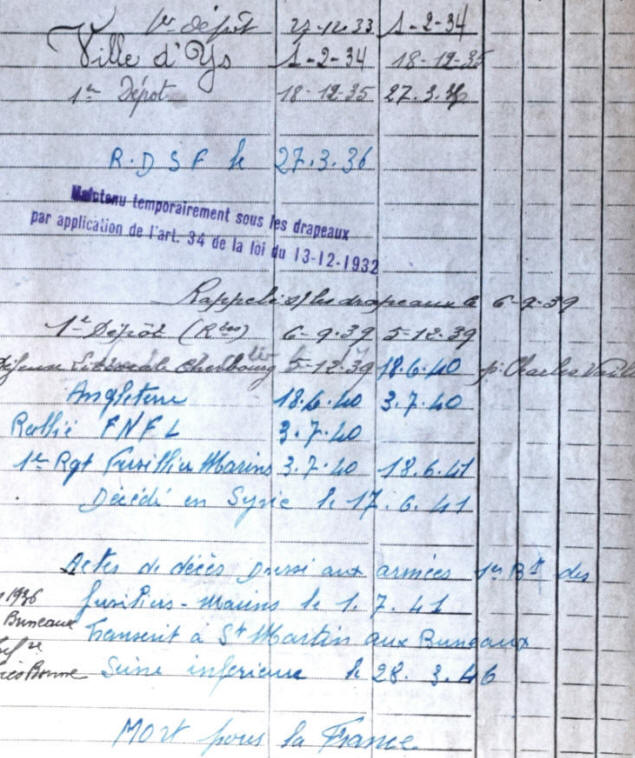 1er dépôt 27-12-33 1-2-34
Ville d'Ys 1-2-34 18-12-35
1er Dépot 18-12-35 27.3.36
R.D S F le 27.3.36
Maintenu temporairement sous les drapeaux
par application de l'art. 34 de la loi du 13-12-1932
Rappelé s/les drapeaux le 6-9-39
1er Dépôt (Rtes) 6-9-39 5-12-39
Cherbourg 5-12-39 18.6.40 p. Charles
Angleterre 18.6.40 3.7.40
Rallié FNFL 3.7.40
1er Rgt Fusilliers Marins 3.7.40 18.6.41
Décédé en Syrie le 17.6.41
Actes de décès Dressé aux armées 1er Bt des
1936 fusiliers-marins le 1.7.41
Buneaux Transcrit à St Martin aux Buneaux
Bonne Seine inférieure le 28.3.46
Mort pour la France